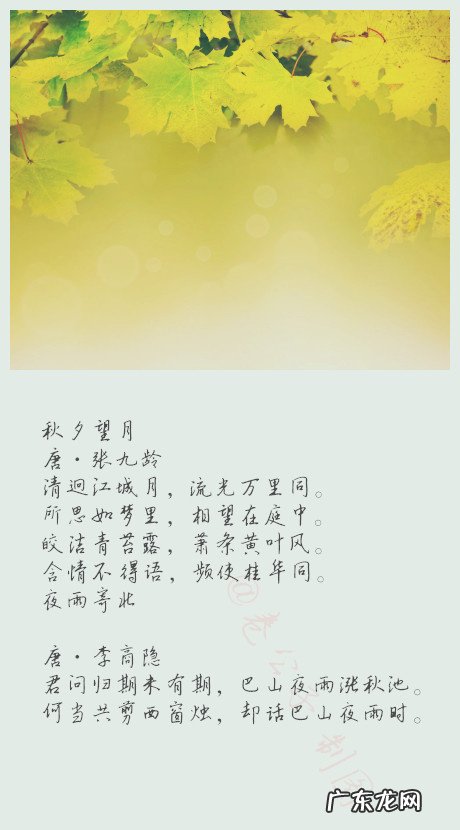 秋夕望月
唐·张九龄
清迥江城月，流光万里同。
所思如梦里，相望在庭中。
皎洁青苔露，萧条黄叶风。
含情不得语，频使桂华同。
夜雨寄北
唐·李商隐
君问归期未有期，巴山夜雨涨秋池。
何当共剪西窗烛，却话巴山夜雨时。
广东龙网